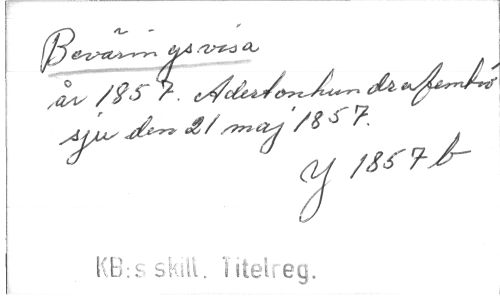 Beväringsvisa
år 1857. Adertonhundrafemtio
sju den 21 maj 1857.
Y 1857 b
KB:s skill. Titelreg.